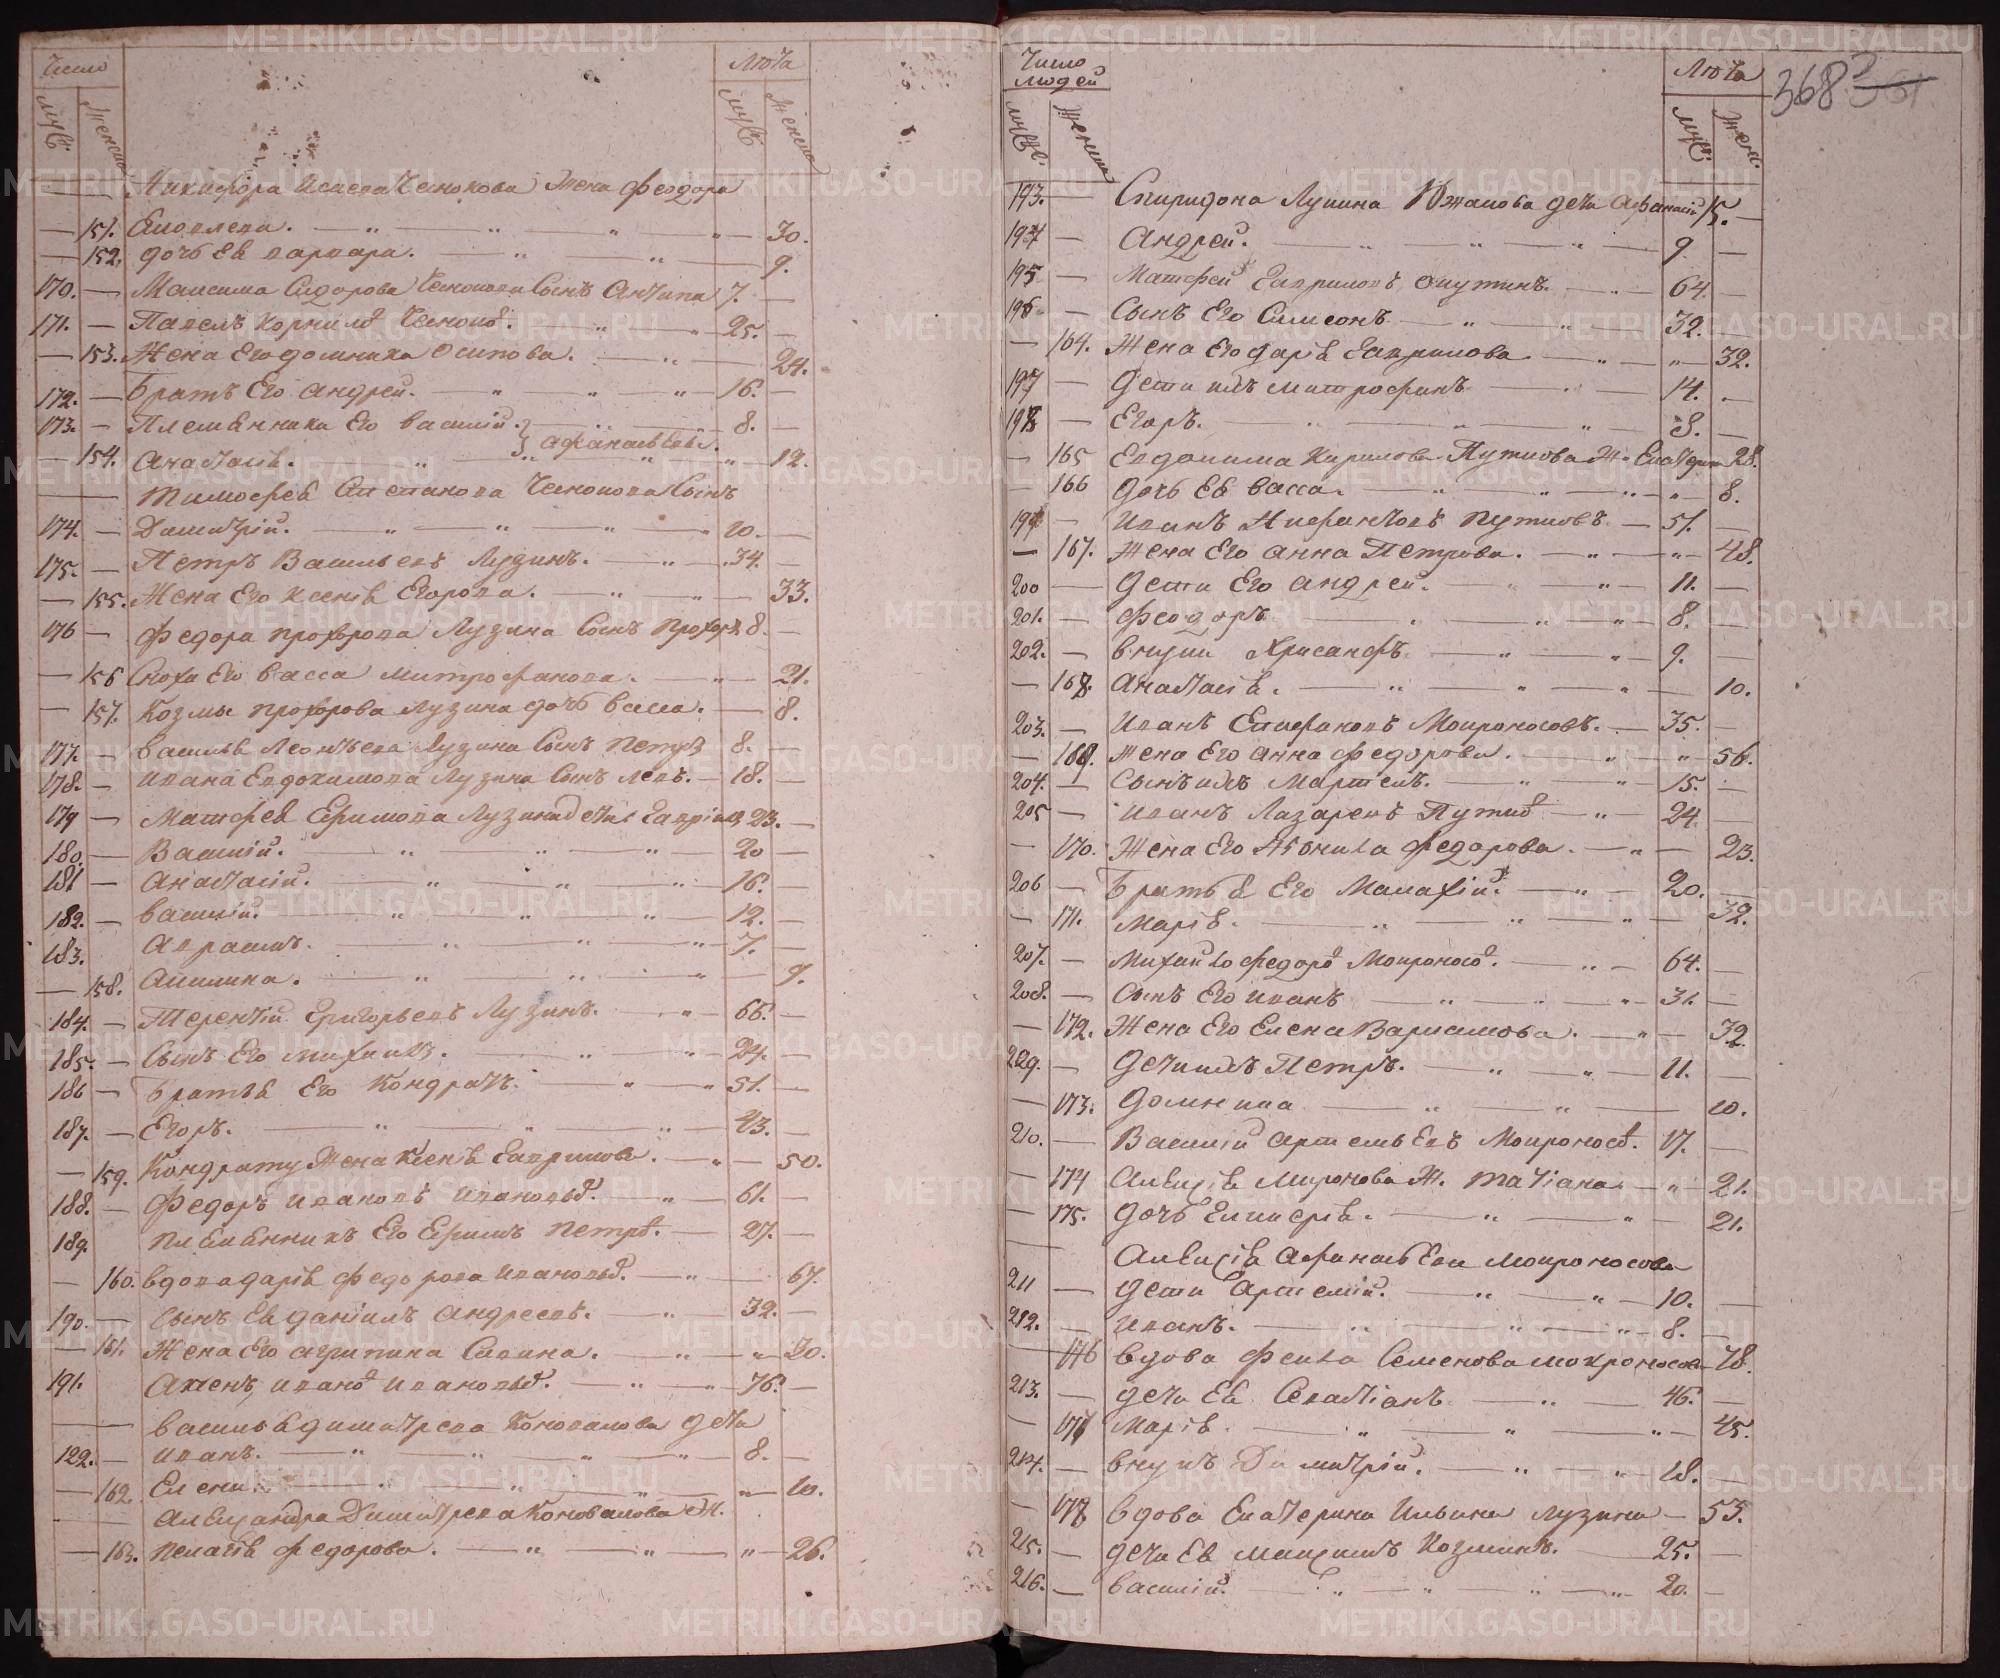 Число
Лѣта
муж.
женска
муж
женска
Никифора Исаева Чеснокова Жена Феодора
151. Яковлева. 30.
152. дочь Ея варвара. 9.
170. Максима Сидорова Чеснокова Сынъ Антипа 7.
171. Павелъ Корнило Чесноко. 25.
153. Жена Его домника Осипова. 24.
172. Братъ Его Андрей. 16.
173. Племянники Его василій. 8.
Афанасьевы.
154. Анастасія. 12.
Тимофея Степанова Чеснокова Сынъ
174. Димитрій. 10.
175. Петръ Васильевъ Лузинъ. 34.
155. Жена Его Ксенія Егорова. 33.
176 Федора прохорова Лузина Сынъ Прохоръ 8.
156 Сноха Его васса митрофанова. 21.
157. Козмы прохорова Лузина дочь васса. 8.
177. василья Леонтьева Лузина Сынъ Петръ 8.
178. ивана Евдокимова Лузина Сынъ левъ. 18.
179 Матфея Ефимова Лузина дети Гаврiилъ 23.
180. Василій. 20
181 Анастасій. 16.
182. василій. 12.
183. Аврамъ. 7.
158. Акилина. 9.
184. Терентій Григорьевъ Лузинъ. 66.
185. Сынъ Его михаилъ. 24.
186 Братья Его Кондратъ. 51.
187. Егоръ. 43.
159. Кондрату Жена Ксенія Гаврилова. 50.
188. Федоръ ивановъ ивановы. 61.
189. племянникъ Его Ефимъ петро. 27.
160. вдова дарія Федорова ивановы. 67.
190. Сынъ Ея даніилъ Андреевъ. 32.
161. Жена Его агрипина Савина. 30.
191. Аксенъ ивано ивановы. 76.
василья димитрева Коновалова дети
122. иванъ. 8.
162. Елена. 10.
Александра Димитрева Коновалова Ж.
163. пелагія Федорова. 26.
Число людей
Лѣта
368
муже.
женска
муж.
жен.
193. Спиридона Лукина Южакова дети Афанасій 15.
194 Андрей. 9.
195 Матфей Гавриловъ Окутинъ. 64.
196 Сынъ Его Симеонъ 32.
164. Жена Его дарія Гаврилова 32.
197 Дети ихъ митрофанъ 14.
198 Егоръ. 8.
165 Евдокима Кирилова Путилова Ж. Екатерина 28.
166 дочь Ея васса. 8.
199 иванъ Нифантовъ Путиловъ 51.
167. Жена Его Анна Петрова. 48.
200 Дети Его андрей. 11.
201. Феодоръ 8.
202. внуки Хрисанфъ 9.
168. Анастасія. 10.
203. иванъ Епифановъ Мокроносовъ. 35.
169. Жена Его Анна Федорова. 56.
204. Сынъ ихъ Мартемъ. 15.
205 иванъ Лазаревъ Путило 24.
170. Жена Его Афонила Федорова. 23.
206 Братья Его Малахій. 20.
171. Марія. 32.
207. Михайло Федоро Мокроносо. 64.
208. Сынъ Его иванъ 31.
172. Жена Его Елена Варламова. 32
209. Дети ихъ Петръ. 11.
173. Домника 10.
210. Василій Артемьевъ Мокроносо. 17.
174 Алексія Миронова Ж. татіана 21.
175. Дочь Гликерія. 21.
Алексія Афанасьева мокроносова
211 дети Артемій. 10.
212. иванъ. 8.
176 вдова Фекла Семенова мокроносова 78.
213. дети Ея Севастіанъ 46.
177 Марія. 45.
214. внукъ Димитрій. 18.
178 вдова Екатерина Ильина лузина 53.
215. дети Ея максимъ Козминъ. 25.
216. василій. 20.
METRIKI.GASO-URAL.RU